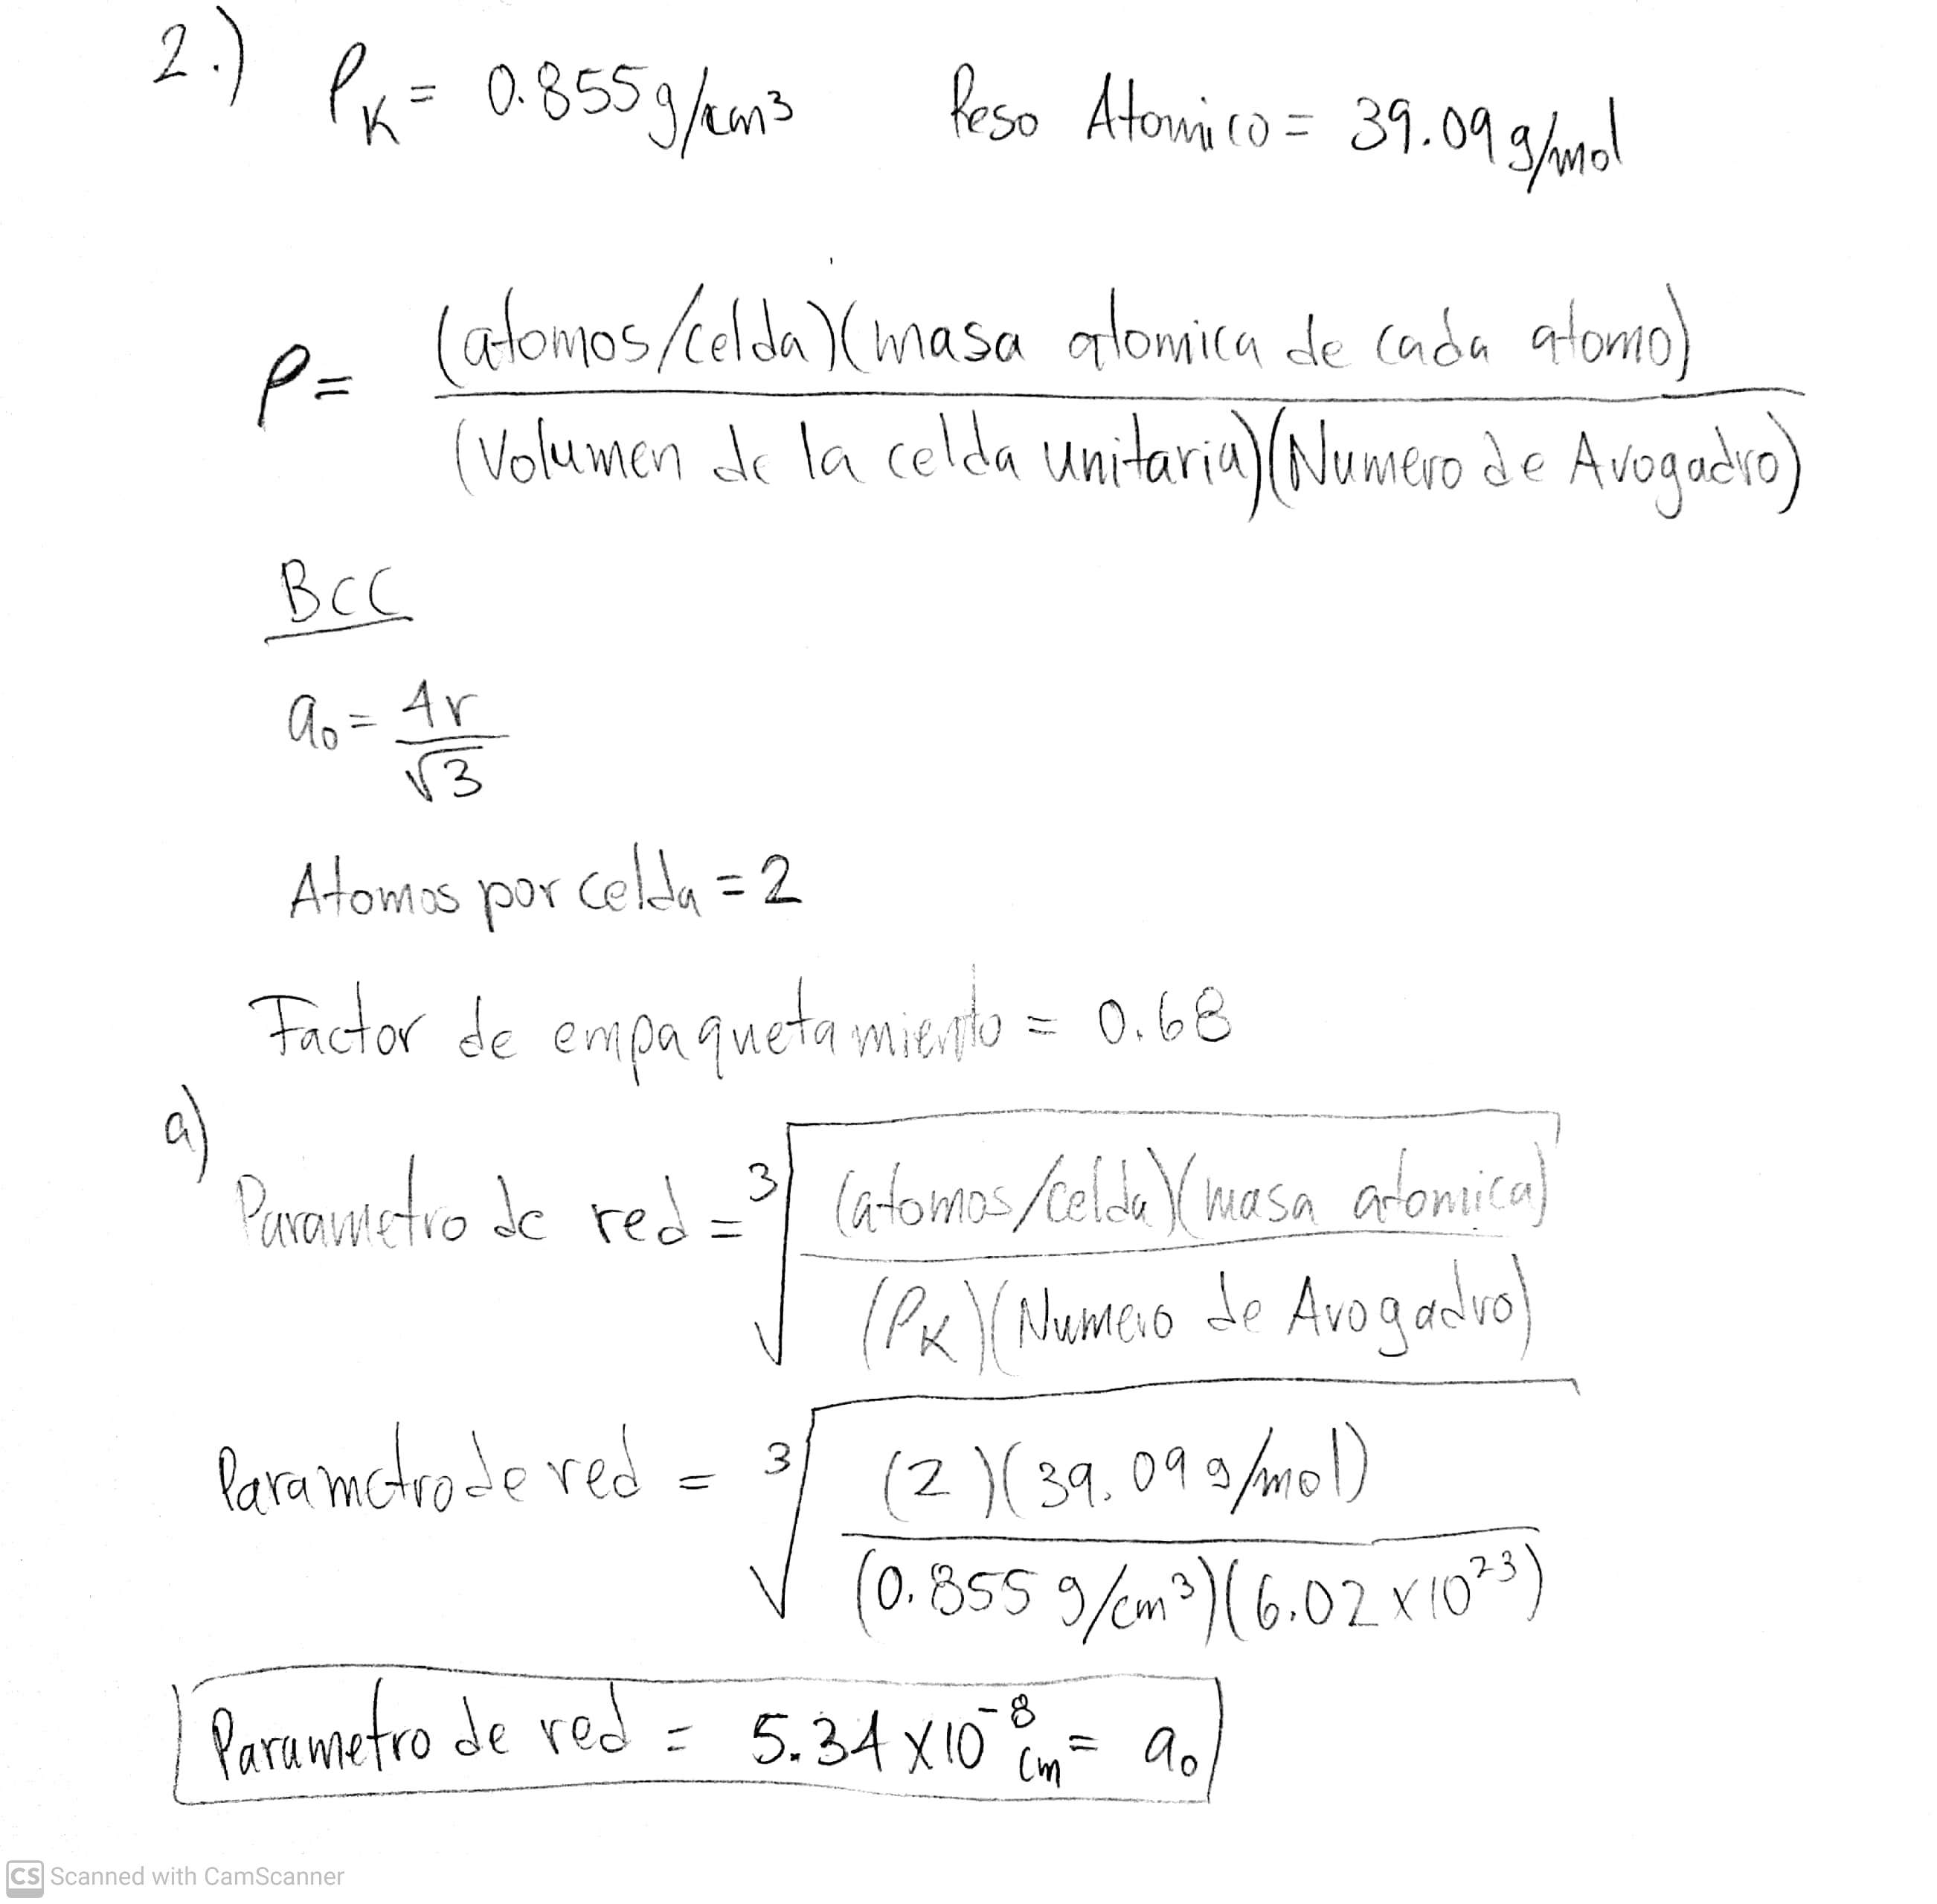 2.) ρK = 0.855 g/cm³ Peso Atomico = 39.09 g/mol
ρ = (atomos/celda)(masa atomica de cada atomo)
(Volumen de la celda unitaria)(Numero de Avogadro)
BCC
a₀ = 4r
√3
Atomos por celda = 2
Factor de empaquetamiento = 0.68
a)
Parametro de red = ³√ (atomos/celda)(masa atomica)
(ρK)(Numero de Avogadro)
Parametro de red = ³√ (2)(39.09 g/mol)
(0.855 g/cm³)(6.02 x10²³)
Parametro de red = 5.34 x10⁻⁸ cm = a₀
CS Scanned with CamScanner